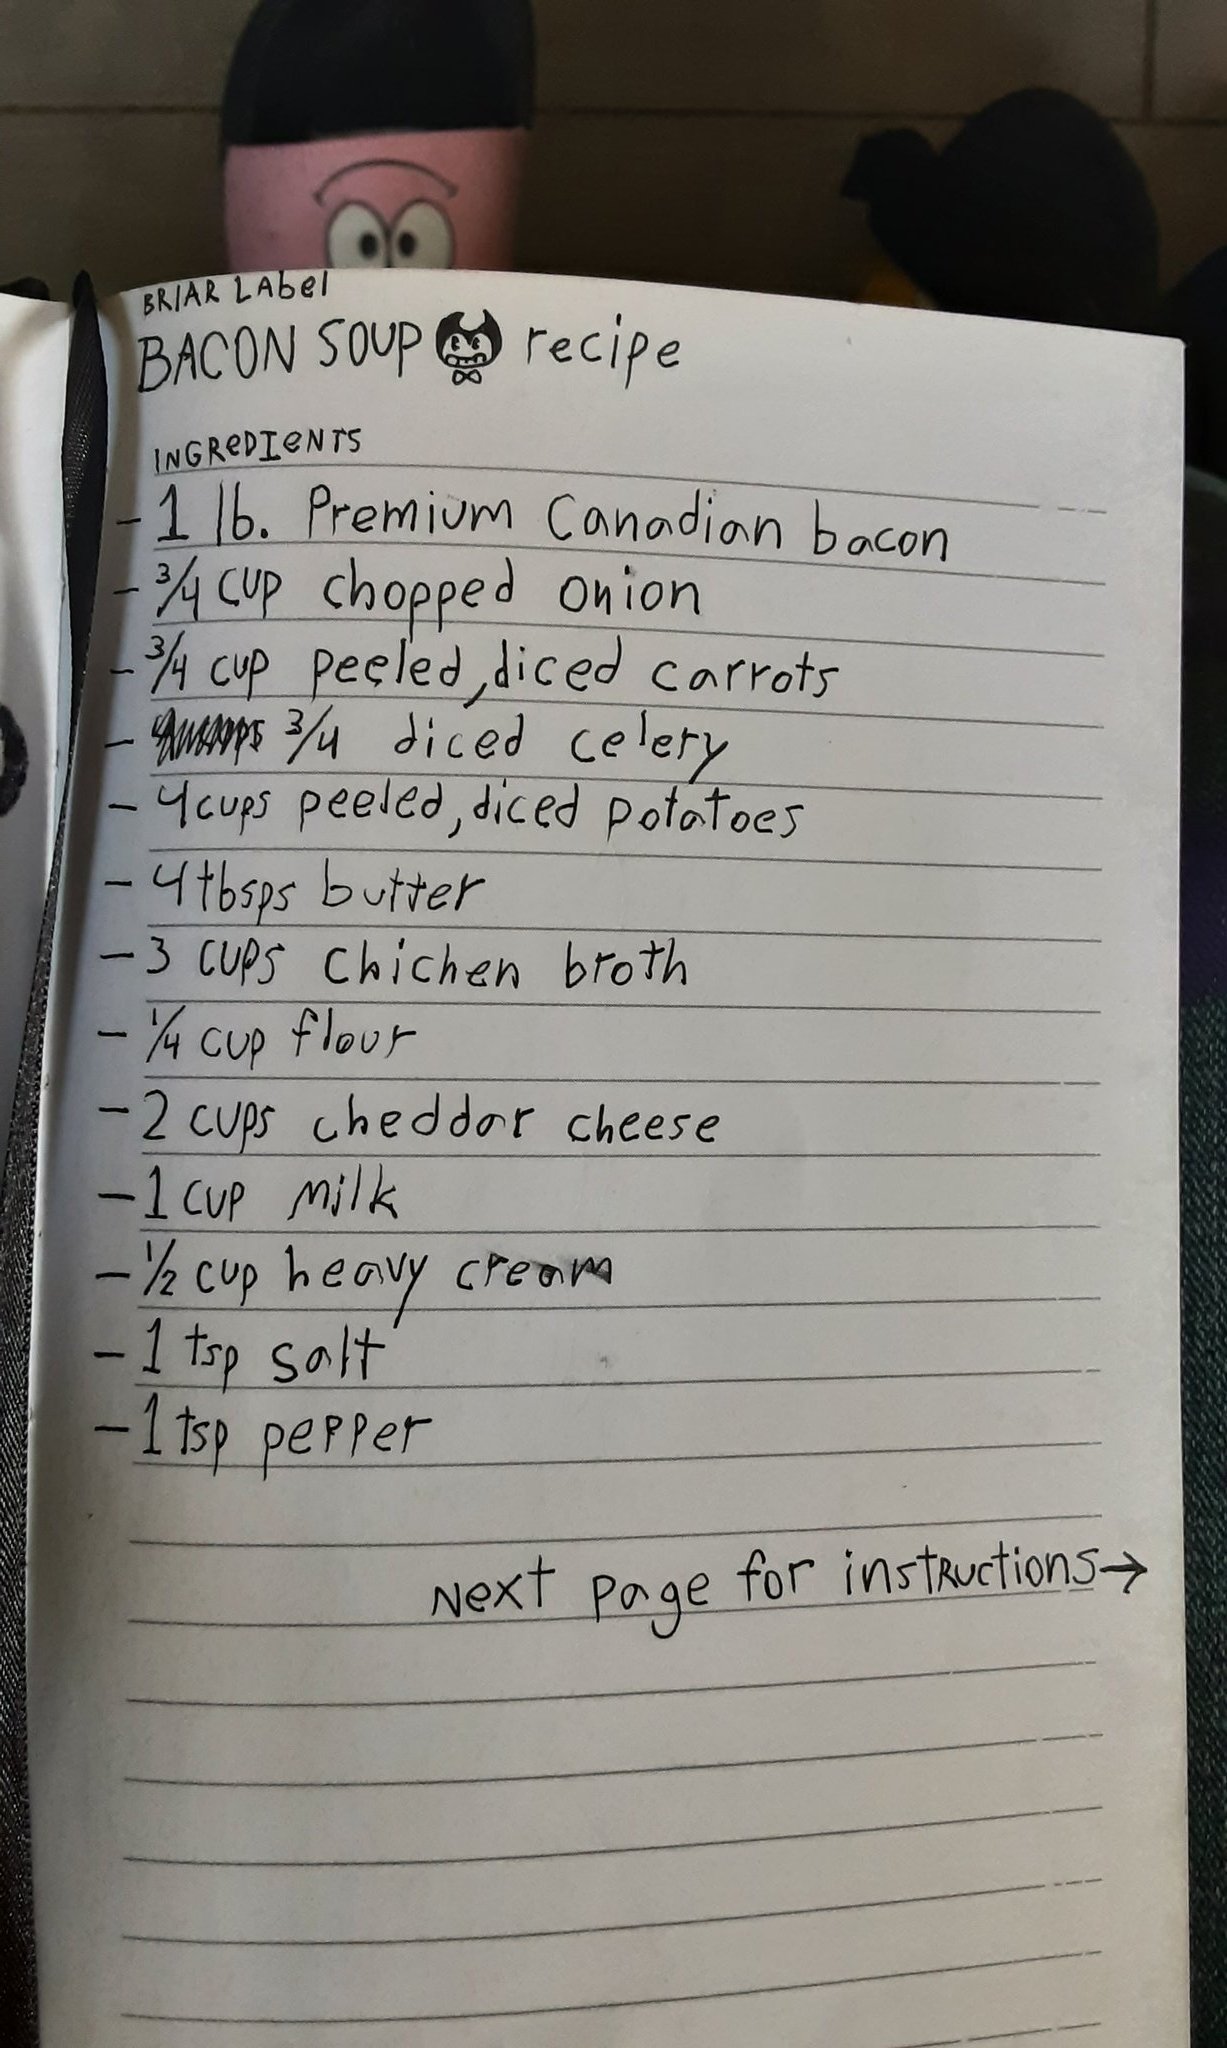 BRIAR LABel
BACON SOUP recipe
INGReDIeNTS
- 1 lb. Premium Canadian bacon
- 3/4 cup chopped onion
- 3/4 cup peeled, diced carrots
- 3/4 diced celery
- 4 cups peeled, diced potatoes
- 4 tbsps butter
- 3 cups chichen broth
- 1/4 cup flour
- 2 cups cheddar cheese
- 1 cup milk
- 1/2 cup heavy cream
- 1 tsp salt
- 1 tsp pepper
Next page for instructions→